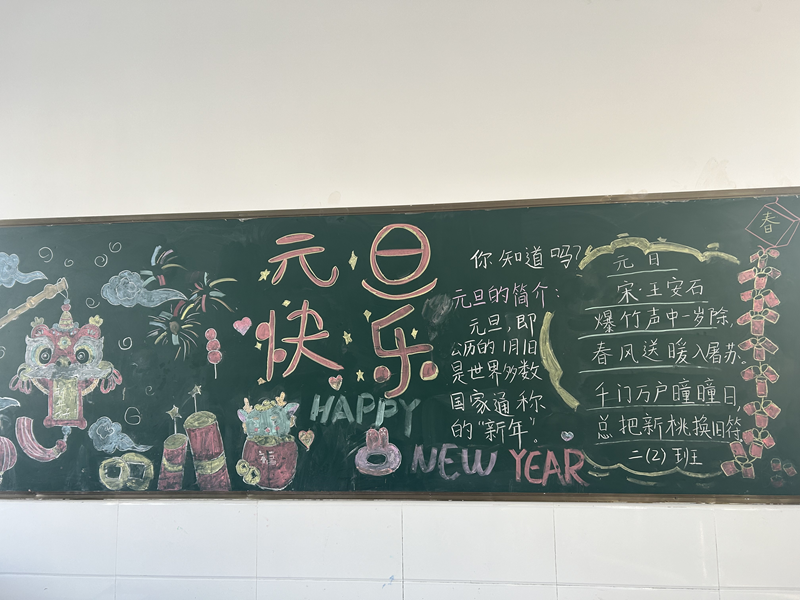 元旦
快乐
HAPPY
NEW YEAR
你知道吗?
元旦的简介:
元旦,即
公历的1月1日
是世界多数
国家通称
的“新年”。
元日
宋·王安石
爆竹声中一岁除,
春风送暖入屠苏.
千门万户曈曈日,
总把新桃换旧符
二(2)班
春